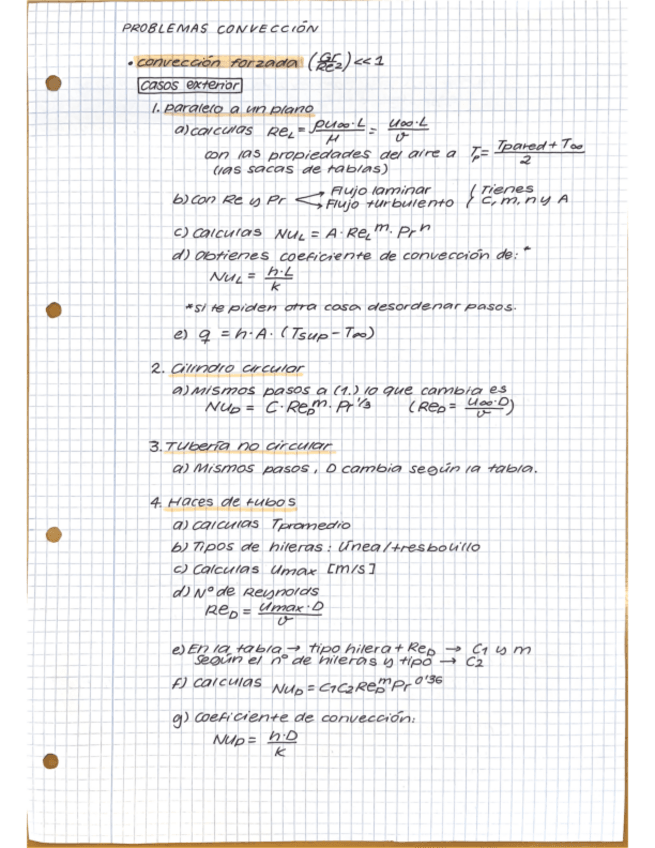 PROBLEMAS CONVECCIÓN
• convección forzada (Gr/Re²) << 1
casos exterior
1. paralelo a un plano
a) calculas Re_L = ρu∞·L/μ = u∞·L/ν
con las propiedades del aire a Tp = Tpared + T∞/2
(las sacas de tablas)
b) con Re y Pr → Flujo laminar → Flujo turbulento } Tienes C, m, n y A
c) calculas Nu_L = A·Re_L^m·Pr^n
d) Obtienes coeficiente de convección de: *
Nu_L = h·L/k
*si te piden otra cosa desordenar pasos.
e) q = h·A·(Tsup - T∞)
2. Cilindro circular
a) Mismos pasos a (1.) lo que cambia es
Nu_D = C·Re_D^m·Pr^1/3 (Re_D = u∞·D/ν)
3. Tubería no circular
a) Mismos pasos, D cambia según la tabla.
4. Haces de tubos
a) calculas Tpromedio
b) Tipos de hileras: línea/tresbolillo
c) Calculas Umax [m/s]
d) Nº de Reynolds
Re_D = Umax·D/ν
e) En la tabla → tipo hilera + Re_D → C1 y m
según el nº de hileras y tipo → C2
f) calculas Nu_D = C1C2Re_D^m Pr^0'36
g) Coeficiente de convección:
Nu_D = h·D/k